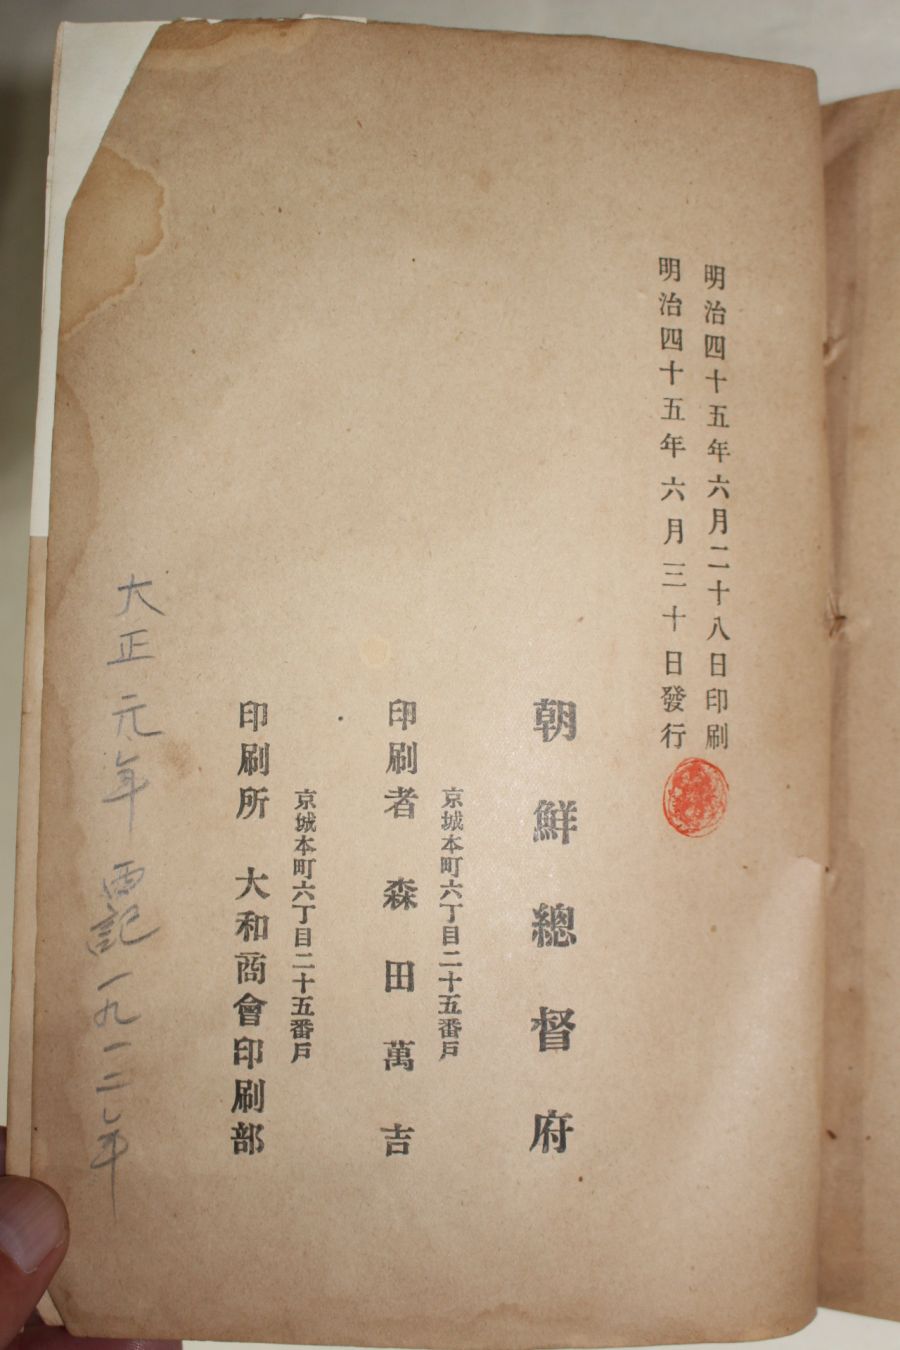 明治四十五年六月二十八日印刷
明治四十五年六月三十日發行
朝鮮總督府
京城本町六丁目二十五番戶
印刷者 森田萬吉
京城本町六丁目二十五番戶
印刷所 大和商會印刷部
大正元年 西記一九一二年